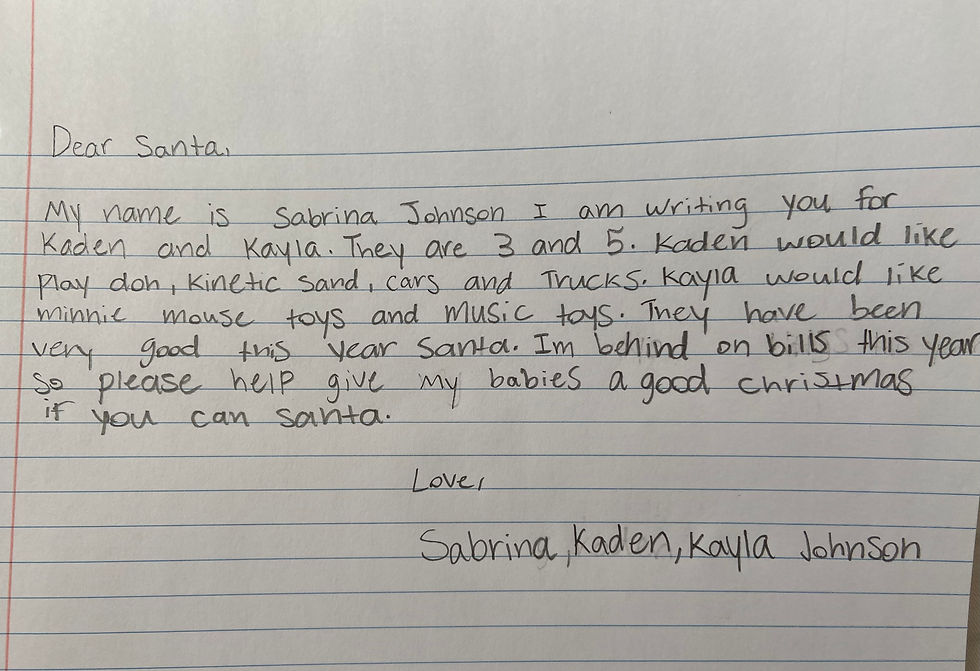 Dear Santa,
My name is Sabrina Johnson I am writing you for
Kaden and Kayla. They are 3 and 5. Kaden would like
Play doh, Kinetic Sand, cars and Trucks. Kayla would like
minnie mouse toys and music toys. They have been
very good this year Santa. Im behind on bills this year
So please help give my babies a good christmas
if you can santa.
Love,
Sabrina, Kaden, Kayla Johnson